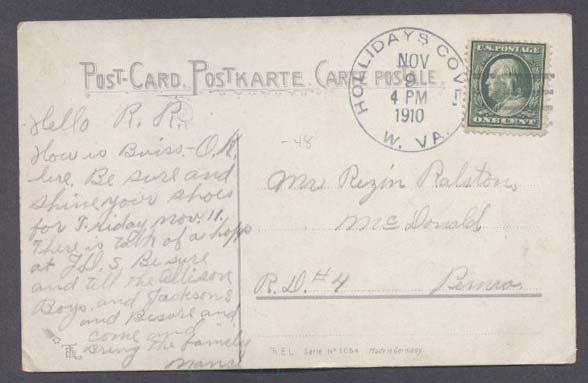 POST-CARD. POSTKARTE. CARTE POSTALE.
HOLLIDAYS COVE,
NOV
9
4 PM
1910
W. VA.
U.S. POSTAGE
ONE CENT
-48
Hello R. R.
How is Buiss-O.K.
here. Be sure and
shine your shoes
for Friday Nov. 11.
There is talk of a hopp
at J.D.S. Be sure
and till the Allison
Boys. and Jacksons
and Besure and
come and
Bring the family
Mr Rezin Ralston,
McDonald
R.D. #4 Penna.
E.L. Serie No 1064 Made in Germany